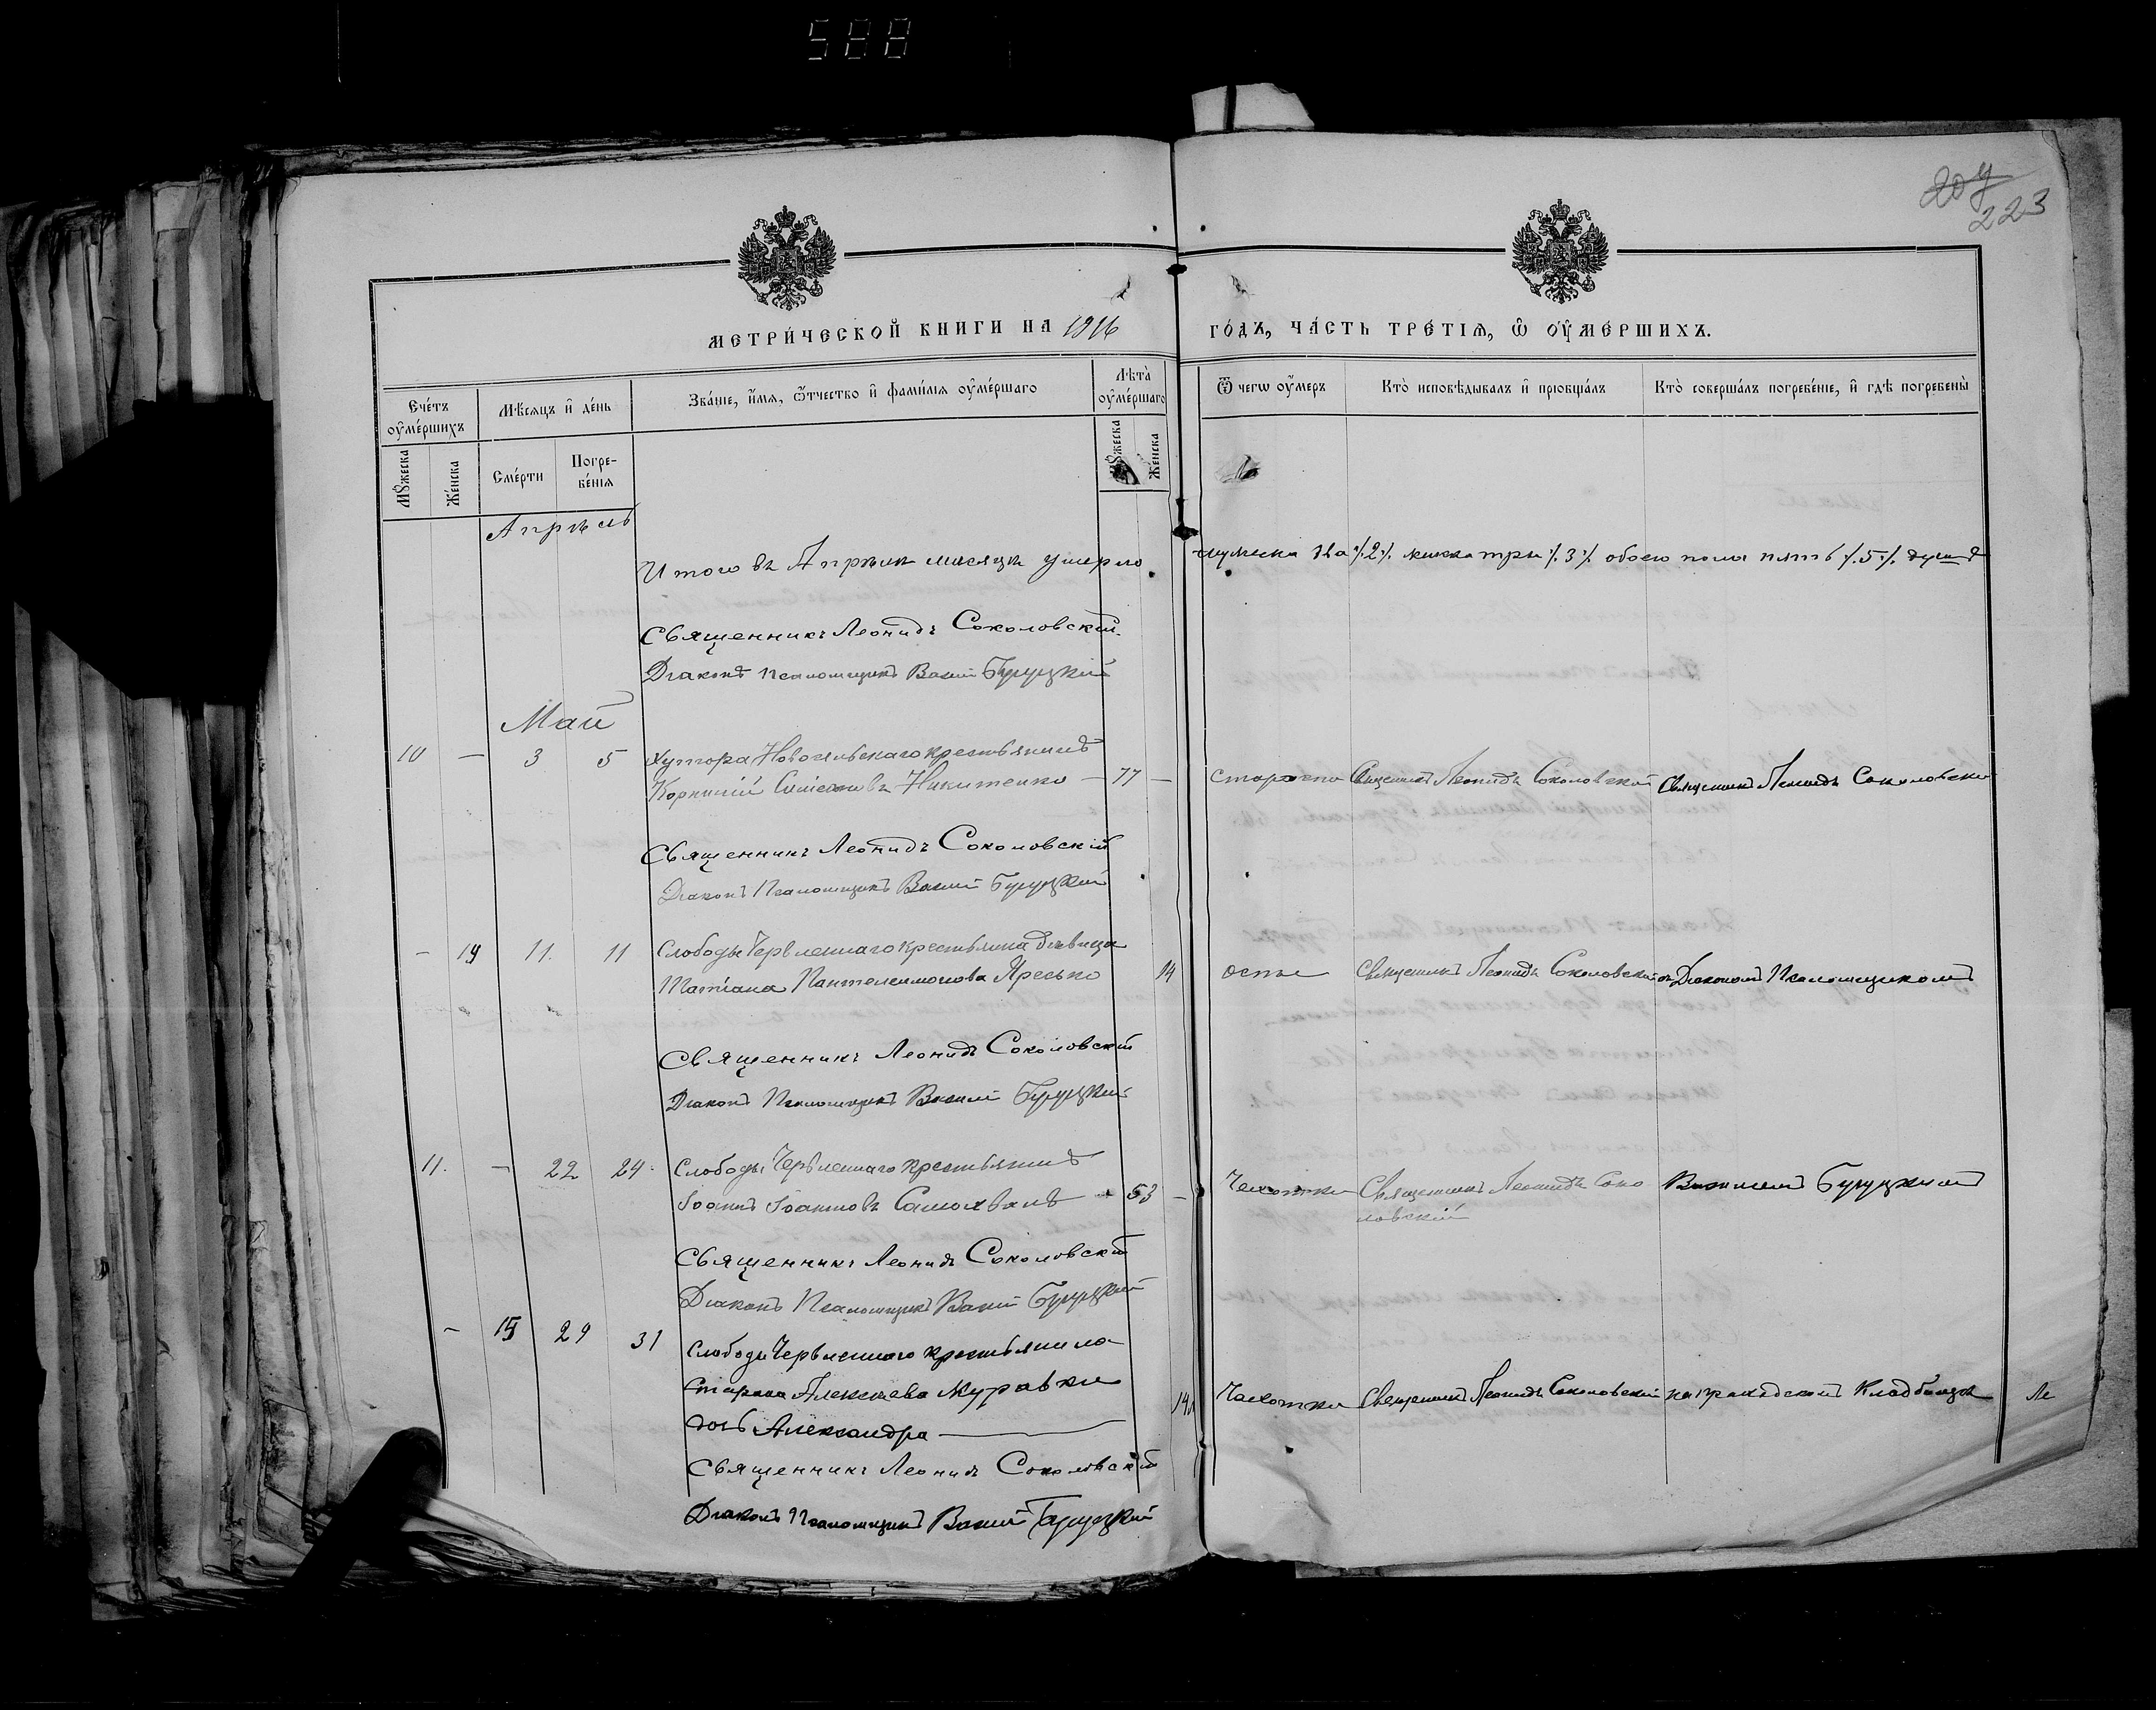 588
207
223
МЕТРИ́ЧЕСКОЙ КНИГИ НА 1916 ГО́ДЪ, ЧА́СТЬ ТРЕ́ТІѦ, Ѽ ОУ҆МЕ́РШИХЪ.
Сче́тъ оу҆ме́ршихъ
Мѣ́сяцъ и҆ де́нь
Зва́ніе, и҆́мя, ѻ҆́тчество и҆ фами́лія оу҆ме́ршаго
Лѣта̀ оу҆ме́ршаго
Ѿ чегѡ оу҆́меръ
Кто̀ исповѣ́дывалъ и҆ прїобща́лъ
Кто̀ соверша́лъ погребе́ніе, и҆ гдѣ̀ погребены̀
Мꙋ́жеска
Же́нска
Сме́рти
Погребе́нія
Мꙋ́жеска
Же́нска
Апрѣль
Итого въ Апрѣлѣ мѣсяцѣ умерло мужеска два ./.2./. женска три ./.3./. обоего пола пять ./.5./. душъ
Священникъ Леонидъ Соколовскій.
Діаконъ Псаломщикъ Васил Буруцкій
Май
10 — 3 5 Хутора крестьянинъ
Корнилій Симеоновъ Никитенко — 77 — старости Священникъ Леонидъ Соколовскій Священникъ Леонидъ Соколовскій
Священникъ Леонидъ Соколовскій
Діаконъ Псаломщикъ Васил Буруцкій
— 14 11. 11 Слободы Червленнаго крестьянка дѣвица
Татіана Пантелеимонова Яресько 14 оспы Священникъ Леонидъ Соколовскій съ Діакономъ Псаломщикомъ
Священникъ Леонидъ Соколовскій
Діаконъ Псаломщикъ Васил Буруцкій
11. — 22 24. Слободы Червленнаго крестьянинъ
Іоаннъ Іоанновъ Самохвалъ — 53 — Чахотки Священникъ Леонидъ Соко
ловскій
Василіемъ Буруцкимъ
Священникъ Леонидъ Соколовскій
Діаконъ Псаломщикъ Васил Буруцкій
— 15 29 31 Слободы Червленнаго крестьянина
Алексѣева Журавки
дочь Александра —
14 Чахотки Священникъ Леонидъ Соколовскій на гражданскомъ кладбищѣ
Священникъ Леонидъ Соколовскій
Діаконъ Псаломщикъ Васил Буруцкій